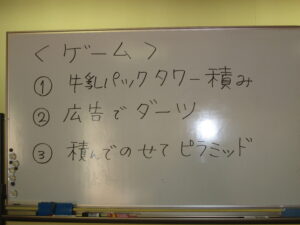 ＜ゲーム＞
① 牛乳パックタワー積み
② 広告でダーツ
③ 積んでのせてピラミッド